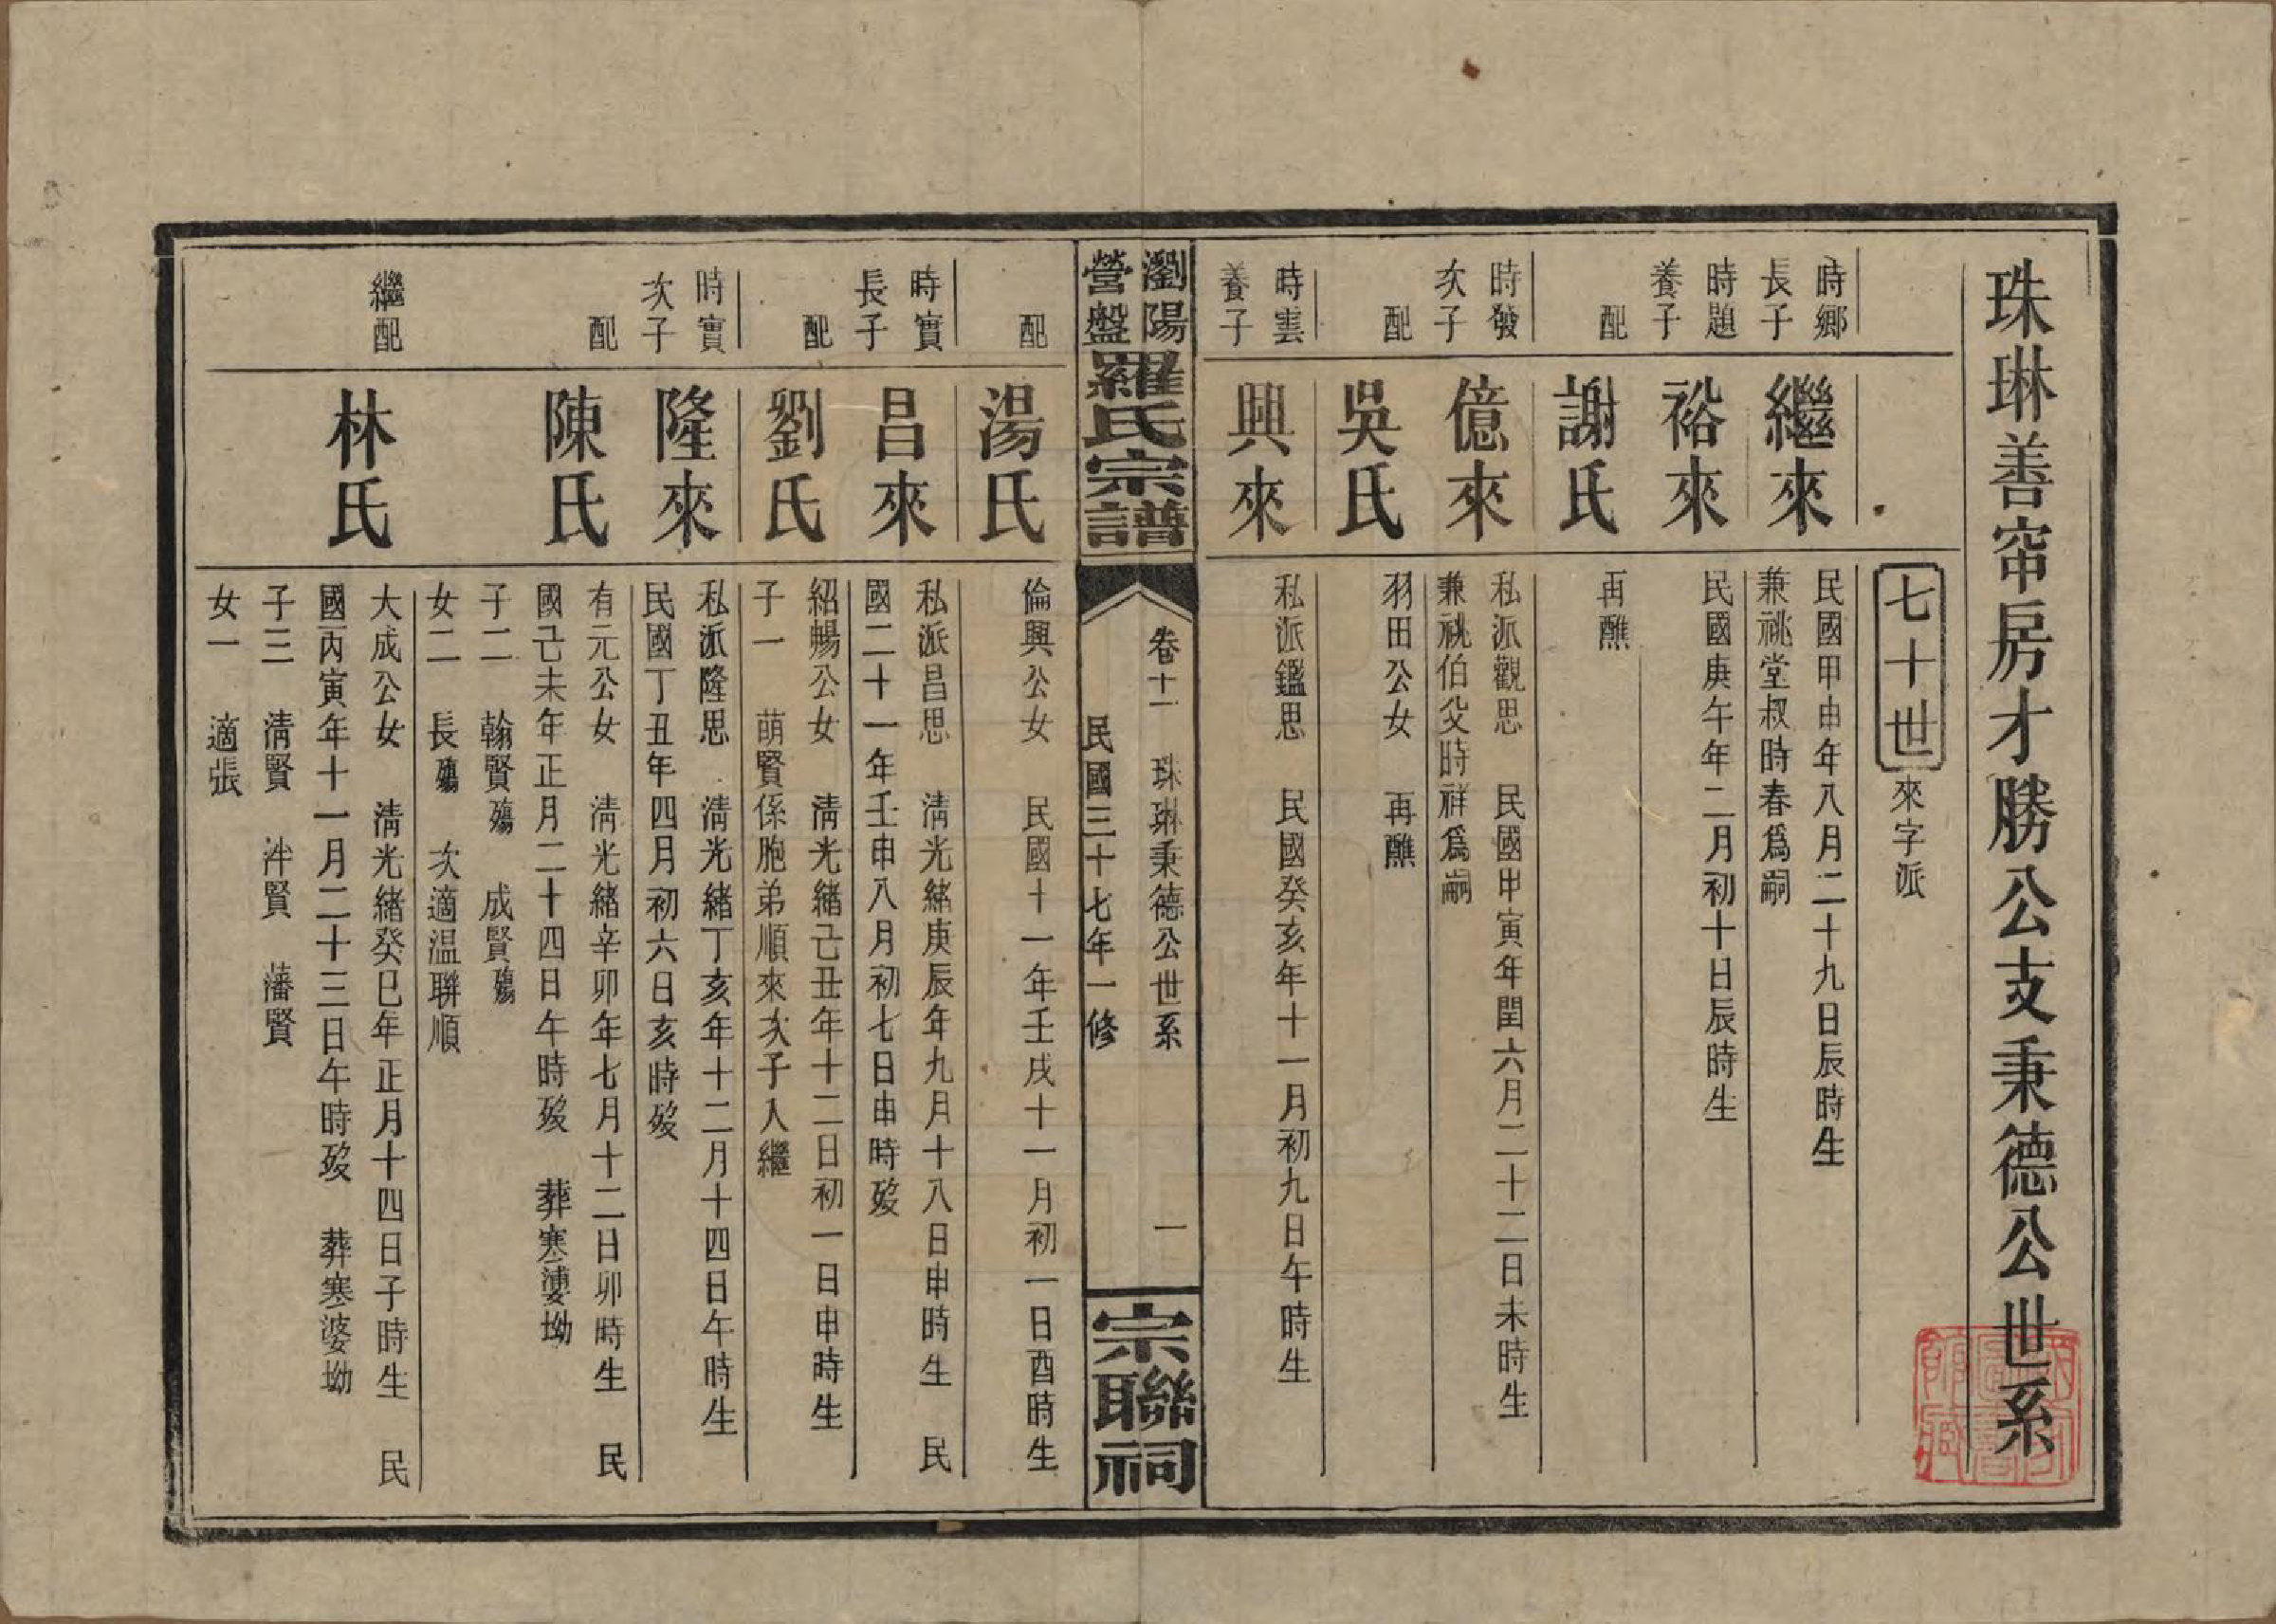 珠琳善窜房才勝公支秉德公世系
七十世
來字派
時鄉長子
繼來
民國甲申年八月二十九日辰時生
兼祧堂叔時春爲嗣
時題養子
裕來
民國庚午年二月初十日辰時生
配
謝氏
再醮
時發次子
億來
私派觀思 民國甲寅年閏六月二十二日未時生
兼祧伯父時祥爲嗣
配
吳氏
羽田公女 再醮
時雲養子
興來
私派鑑思 民國癸亥年十一月初九日午時生
瀏陽營盤
羅氏宗譜
卷十一 珠琳秉德公世系 一
民國三十七年一修
宗聯祠
配
湯氏
倫興公女 民國十一年壬戌十一月初一日酉時生
時實長子
昌來
私派昌思 淸光緒庚辰年九月十八日申時生 民
國二十一年壬申八月初七日申時歿
配
劉氏
紹暢公女 淸光緒己丑年十二日初一日申時生
子一 萌賢係胞弟順來次子入繼
時實次子
隆來
私派隆思 淸光緒丁亥年十二月十四日午時生
民國丁丑年四月初六日亥時歿
配
陳氏
有元公女 淸光緒辛卯年七月十二日卯時生 民
國己未年正月二十四日午時歿 葬寒婆坳
子二 翰賢殤 成賢殤
女二 長殤 次適温聯順
繼配
林氏
大成公女 淸光緒癸巳年正月十四日子時生 民
國丙寅年十一月二十三日午時歿 葬寒婆坳
子三 淸賢 泮賢 藩賢
女一 適張